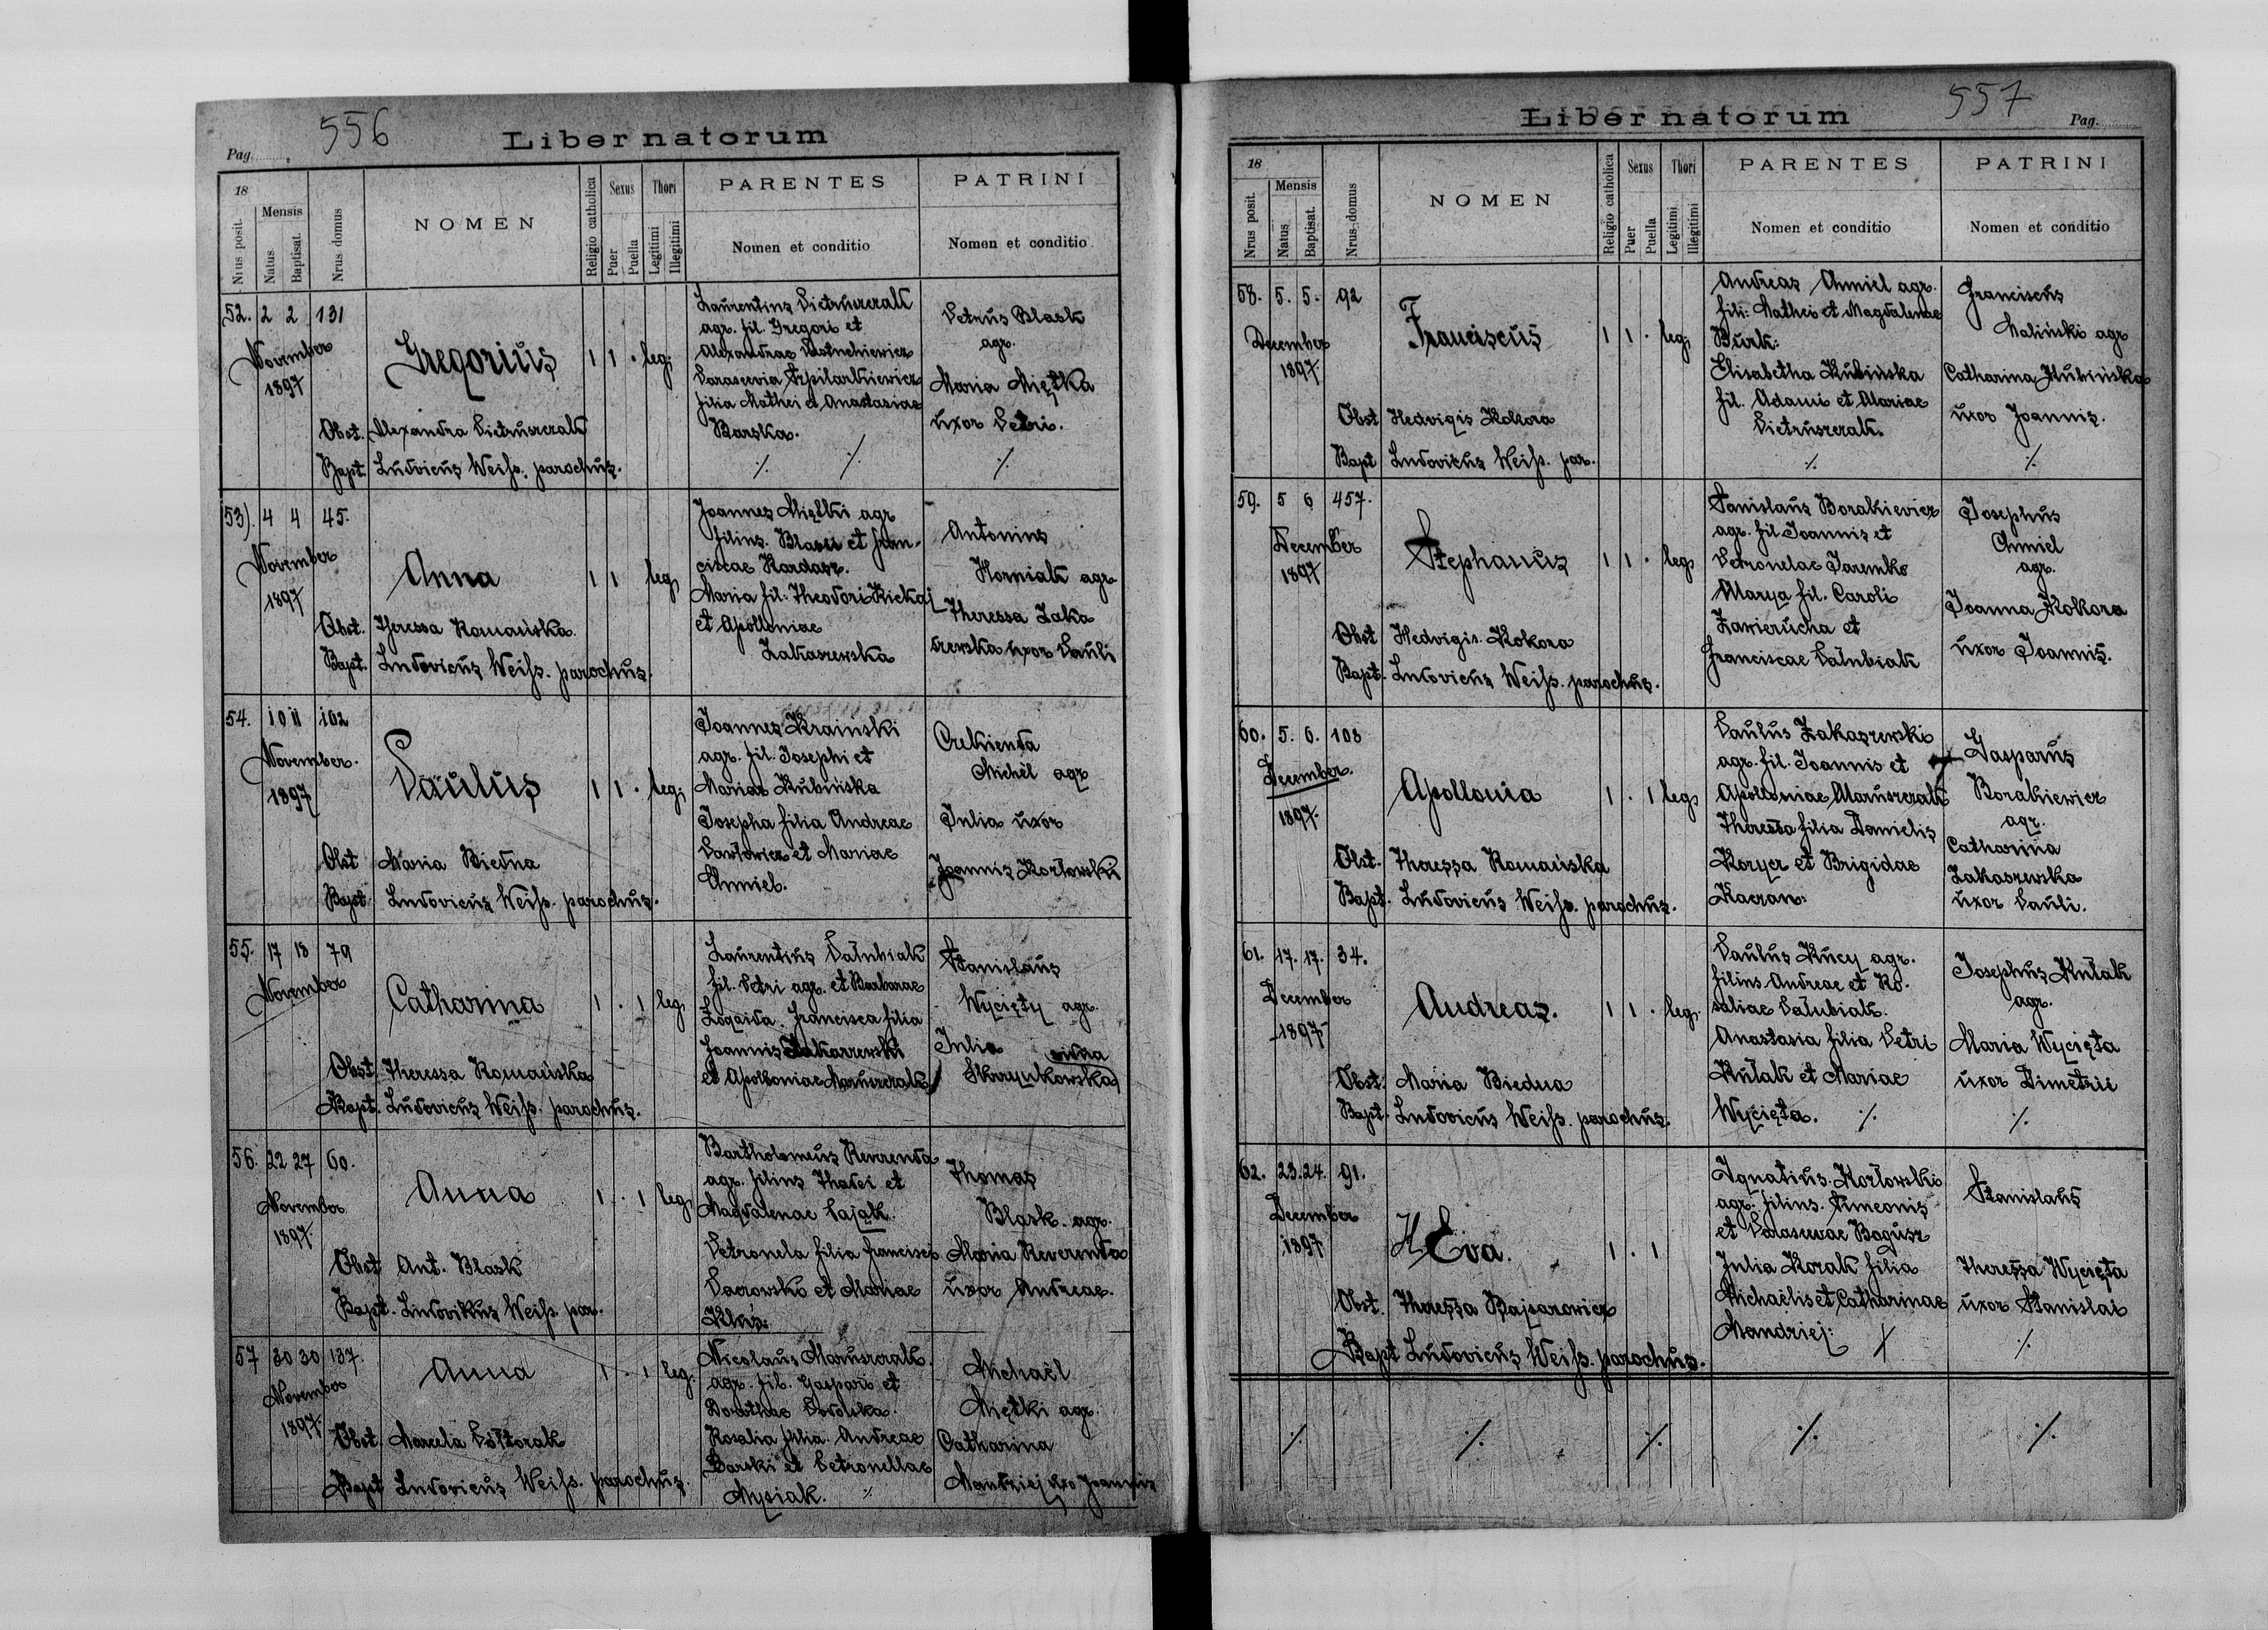 556
Liber natorum
Pag.
18
Nrus posit.
Mensis
Natus
Baptisat.
Nrus domus
NOMEN
Religio catholica
Sexus
Puer
Puella
Thori
Legitimi
Illegitimi
PARENTES
Nomen et conditio
PATRINI
Nomen et conditio
52. 2 2 131
November
1897
Gregorius
1 1 · leg.
Laurentius Pietruszczak
agr. fil. Gregori et
Alexandrae
Parascevia Szpilarkiewicz
filia Mathei et Anastasiae
Barska.
Petrus Blask
agr.
Maria Miętka
uxor Petri.
Obst. Alexandra Pietruszczak
Bapt. Ludovicus Weiß. parochus.
53). 4 4 45.
November
1897
Anna
1 1 leg.
Joannes Miętki agr
filius. Blasii et Fran-
ciscae Kardasz.
Maria fil: Theodori
et Apolloniae
Zakaszewska
Antonius
Horniak agr
Theressa Zaka
szewska uxor Pauli
Obst. Theressa Romańska.
Bapt. Ludovicus Weiß. parochus.
54. 10 11 102
November.
1897
Paulus
1 1 · leg.
Joannes Kraiński
agr. fil. Josephi et
Mariae Kubińska
Josepha filia Andreae
Pawłowicz et Mariae
Chmiel.
Michël agr
Julia uxor
Joannis Kozłowski
Obst Maria Biedna
Bapt. Ludovicus Weiß. parochus.
55. 17 18 79
November
Catharina
1 · 1 leg.
Laurentius Pałubiak
fil. Petri agr. et Barbarae
Zogaida. Francisca filia
Joannis Zakaszewski
et Apolloniae Maruszczak
Stanislaus
Wycięty agr.
Julia vidua
Skrzynkowska
Obst. Theressa Romańska
Bapt. Ludovicus Weiß. parochus.
56. 22 27 60.
November
1897.
Anna
1 · 1 leg.
Bartholomeus Rewerenda
agr. filius Thadei et
Magdalenae Pająk.
Petronela filia Francisci
et Mariae
Kluś.
Thomas
Blask. agr.
Maria Reverenda
uxor Andreae.
Obst Ant. Blask
Bapt. Ludovikus Weiß. par.
57 30 30 137.
November
1897.
Anna
1 · 1 leg.
Nicolaus Maruszczak.
agr. fil. Gaspari et
Dorotheae
Rosalia filia. Andreae
Barski et Petronellae
Mysiak.
Michaël
Miętki agr.
Catharina
Mandziej uxo Joannis
Obst. Marcela Półtorak
Bapt Ludovicus Weiß. parochus.
557
Liber natorum
Pag.
18
Nrus posit.
Mensis
Natus
Baptisat.
Nrus domus
NOMEN
Religio catholica
Sexus
Puer
Puella
Thori
Legitimi
Illegitimi
PARENTES
Nomen et conditio
PATRINI
Nomen et conditio
58. 5. 5. 92
December
1897.
Franciscus
1 1 · leg.
Andreas Chmiel agr.
fili: Mathei et Magdalenae
Burk:
Elisabetha Kubińska
fil. Adami et Mariae
Pietruszczak.
Franciscus
Maliński agr
Catharina Kubińska
uxor Joannis.
Obst Hedvigis Kokora
Bapt Ludovicus Weiß. par.
59. 5 6 457.
December
1897
Stephanus
1 1 · leg.
Stanislaus Borakiewicz
agr. fil Joannis et
Petronelae Jaremko
Marya fil. Caroli
Zawierucha et
Franciscae Pałubiak
Josephus
Chmiel
agr.
Joanna Kokora
uxor Joannis.
Obst Hedvigis. Kokora
Bapt. Ludovicus Weiß. parochus.
60. 5. 6. 108
December.
1897.
Apollonia
1 · 1 leg.
Paulus Zakaszewski
agr. fil. Joannis et
Apolloniae Maruszczak
Theressa filia Danielis
Koryer et Brigidae
Kaeran:
Gasparus
Borakiewicz
agr.
Catharina
Zakaszewska
uxor Pauli.
Obst. Theressa Romańska
Bapt. Ludovicus Weiß. parochus.
61. 17. 17. 34.
December
1897
Andreas.
1 1 · leg.
Paulus Kucy agr.
filius Andreae et Ro-
saliae Pałubiak.
Anastasia filia Petri
Kułak et Mariae
Wycięta.
Josephus Kułak
agr.
Maria Wycięta
uxor Dimetrii
Obst. Maria Biedna
Bapt. Ludovicus Weiß. parochus.
62. 23. 24. 91.
December
1897
Eva.
1 · 1
Ignatius. Kozłowski
agr. filius. Simeonis
et Parascevae Bogusz
Julia Kozak filia
Michaëlis et Catharinae
Mandziej:
Stanislaus
Theressa Wycięta
uxor Stanislai
Obst. Theressa Bajzarowicz
Bapt Ludovicus Weiß. parochus.